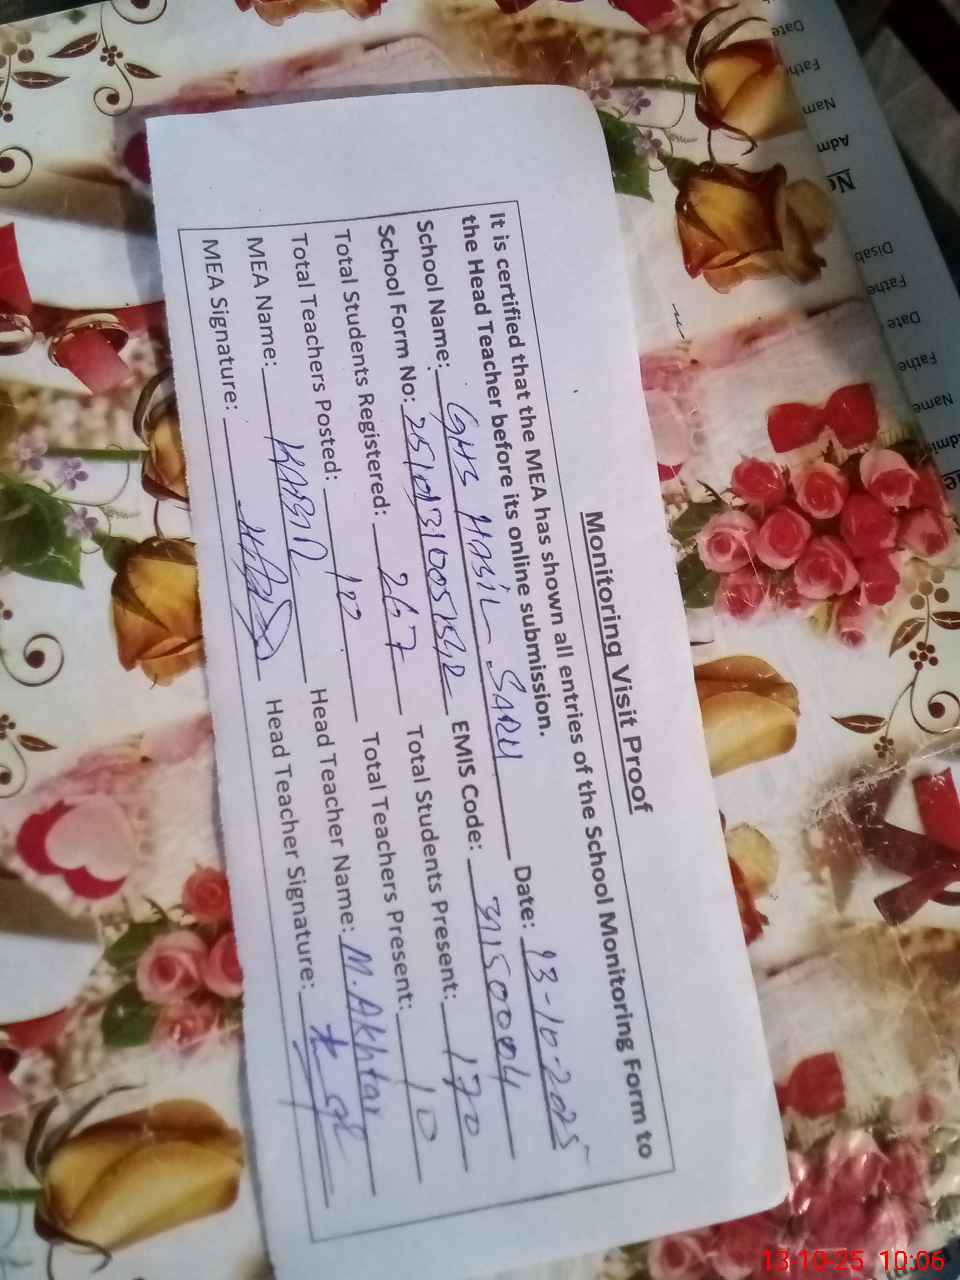 Monitoring Visit Proof
It is certified that the MEA has shown all entries of the School Monitoring Form to
the Head Teacher before its online submission.
School Name: GHS HASIL SARU Date: 13-10-2025
School Form No: EMIS Code: 3150004
Total Students Registered: 267 Total Students Present: 170
Total Teachers Posted: 10 Total Teachers Present: 10
MEA Name: KABIR Head Teacher Name: M. Akhtar
MEA Signature: Head Teacher Signature:
Date
Fathe
Nam
Adm
No
Disab
Fathe
Date
Fathe
Name
13-10-25 10:06